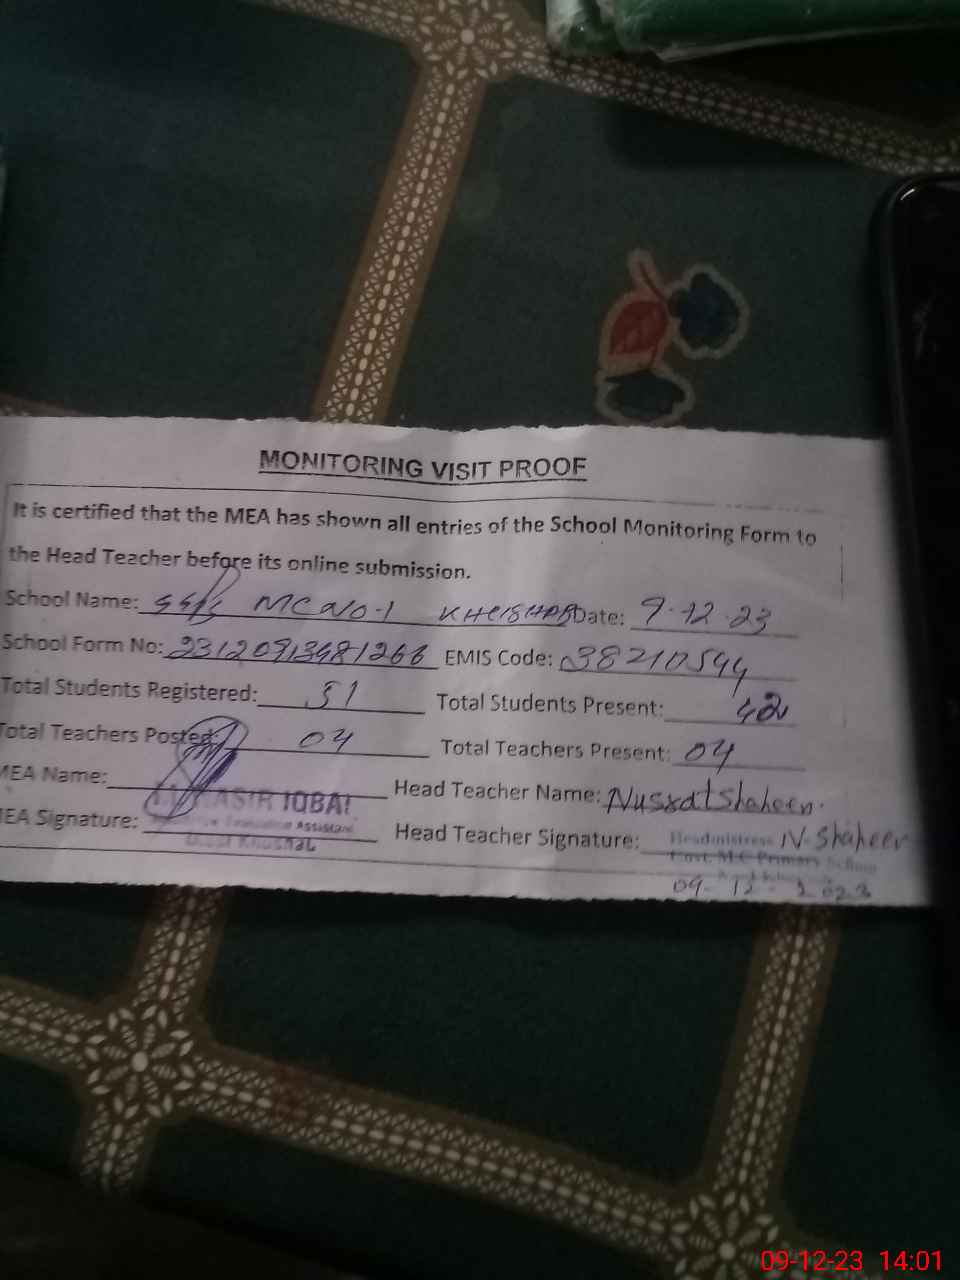 MONITORING VISIT PROOF
It is certified that the MEA has shown all entries of the School Monitoring Form to
the Head Teacher before its online submission.
School Name: MC NO-1 Date: 9-12-23
School Form No: EMIS Code: 38210594
Total Students Registered: 51 Total Students Present: 42
Total Teachers Posted: 04 Total Teachers Present: 04
MEA Name: ASIR IQBAL Head Teacher Name: Nusrat Shaheen
Assistant
MEA Signature: Head Teacher Signature: Headmistress N-Shaheen
Govt. M.C Primary School
09-12-2023
09-12-23 14:01